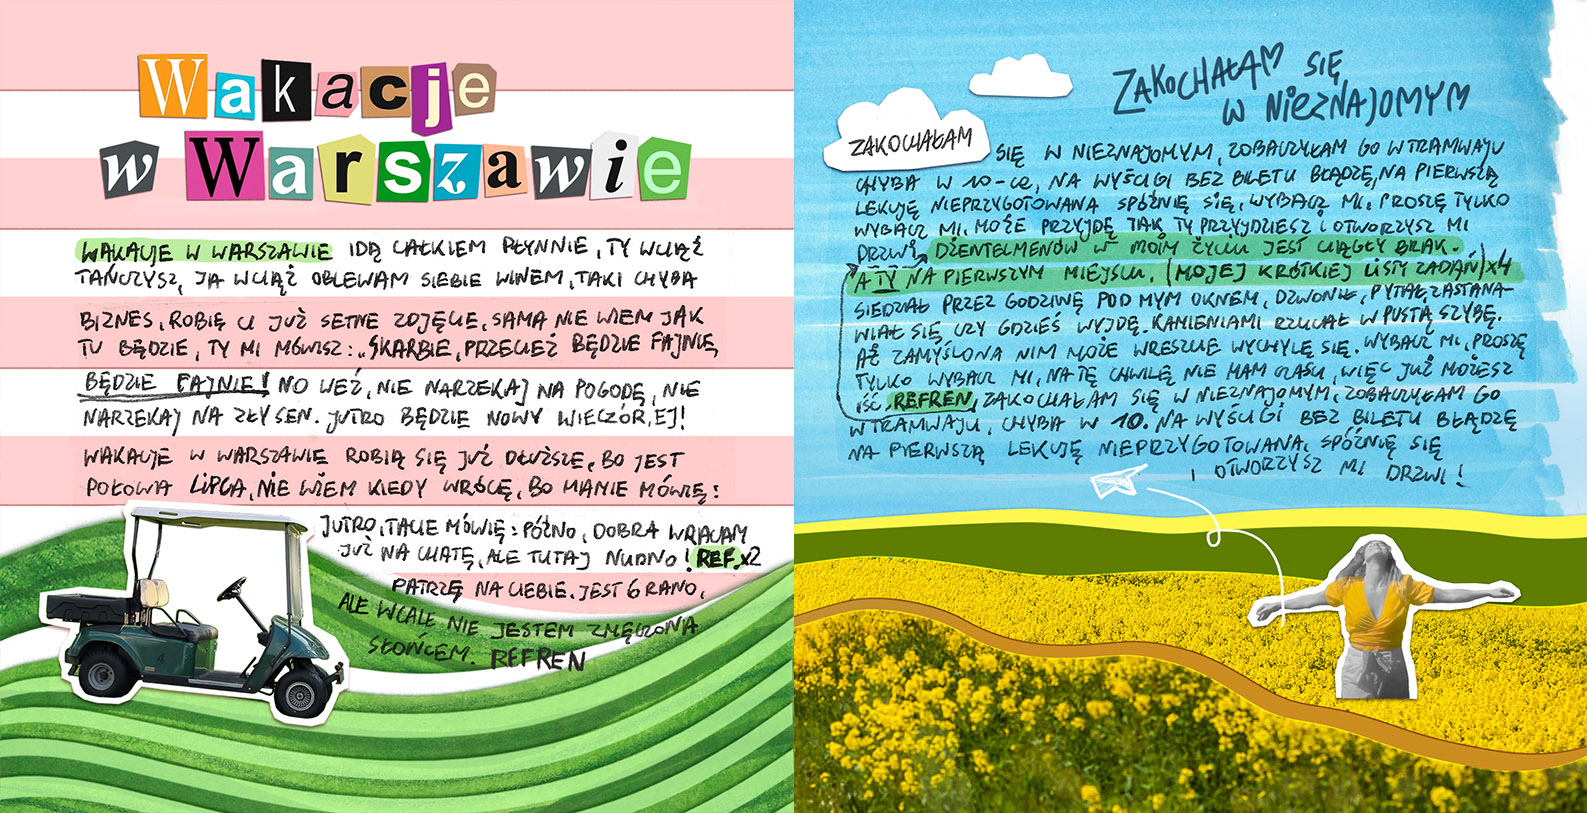 Wakacje
w Warszawie
WAKACJE W WARSZAWIE IDĄ CAŁKIEM PŁYNNIE, TY WCIĄŻ
TAŃCZYSZ, JA WCIĄŻ OBLEWAM SIEBIE WINEM, TAKI CHYBA
BIZNES, ROBIĘ CI JUŻ SETNE ZDJĘCIE, SAMA NIE WIEM JAK
TU BĘDZIE, TY MI MÓWISZ: „SKARBIE, PRZECIEŻ BĘDZIE FAJNIE,
BĘDZIE FAJNIE! NO WEŹ, NIE NARZEKAJ NA POGODĘ, NIE
NARZEKAJ NA ZŁY SEN. JUTRO BĘDZIE NOWY WIECZÓR, EJ!
WAKACJE W WARSZAWIE ROBIĄ SIĘ JUŻ DŁUŻSZE, BO JEST
POŁOWA LIPCA, NIE WIEM KIEDY WRÓCĘ, BO MAMIE MÓWIĘ:
JUTRO, TACIE MÓWIĘ: PÓŹNO, DOBRA WRACAM
JUŻ NA CHATĘ, ALE TUTAJ NUDNO! REF. x2
PATRZĘ NA CIEBIE. JEST 6 RANO,
ALE WCALE NIE JESTEM ZMĘCZONA
SŁOŃCEM. REFREN
4
ZAKOCHAŁAM SIĘ
W NIEZNAJOMYM
ZAKOCHAŁAM SIĘ W NIEZNAJOMYM, ZOBACZYŁAM GO W TRAMWAJU
CHYBA W 10-CE, NA WYŚCIGI BEZ BILETU BŁĄDZĘ, NA PIERWSZĄ
LEKCJĘ NIEPRZYGOTOWANA SPÓŹNIĘ SIĘ, WYBACZ MI, PROSZĘ TYLKO
WYBACZ MI, MOŻE PRZYJDĘ TAK TY PRZYJDZIESZ I OTWORZYSZ MI
DRZWI, DŻENTELMENÓW W MOIM ŻYCIU JEST CIĄGŁY BRAK.
A TY NA PIERWSZYM MIEJSCU. (MOJEJ KRÓTKIEJ LISTY ZADAŃ) x4
SIEDZIAŁ PRZEZ GODZINĘ POD MYM OKNEM, DZWONIŁ, PYTAŁ, ZASTANA-
WIAŁ SIĘ CZY GDZIEŚ WYJDĘ. KAMIENIAMI RZUCAŁ W PUSTĄ SZYBĘ.
AŻ ZAMYŚLONA NIM MOŻE WRESZCIE WYCHYLĘ SIĘ. WYBACZ MI, PROSZĘ
TYLKO WYBACZ MI, NA TĘ CHWILĘ NIE MAM CZASU, WIĘC JUŻ MOŻESZ
IŚĆ. REFREN, ZAKOCHAŁAM SIĘ W NIEZNAJOMYM, ZOBACZYŁAM GO
W TRAMWAJU, CHYBA W 10. NA WYŚCIGI BEZ BILETU BŁĄDZĘ
NA PIERWSZĄ LEKCJĘ NIEPRZYGOTOWANA, SPÓŹNIĘ SIĘ
I OTWORZYSZ MI DRZWI!